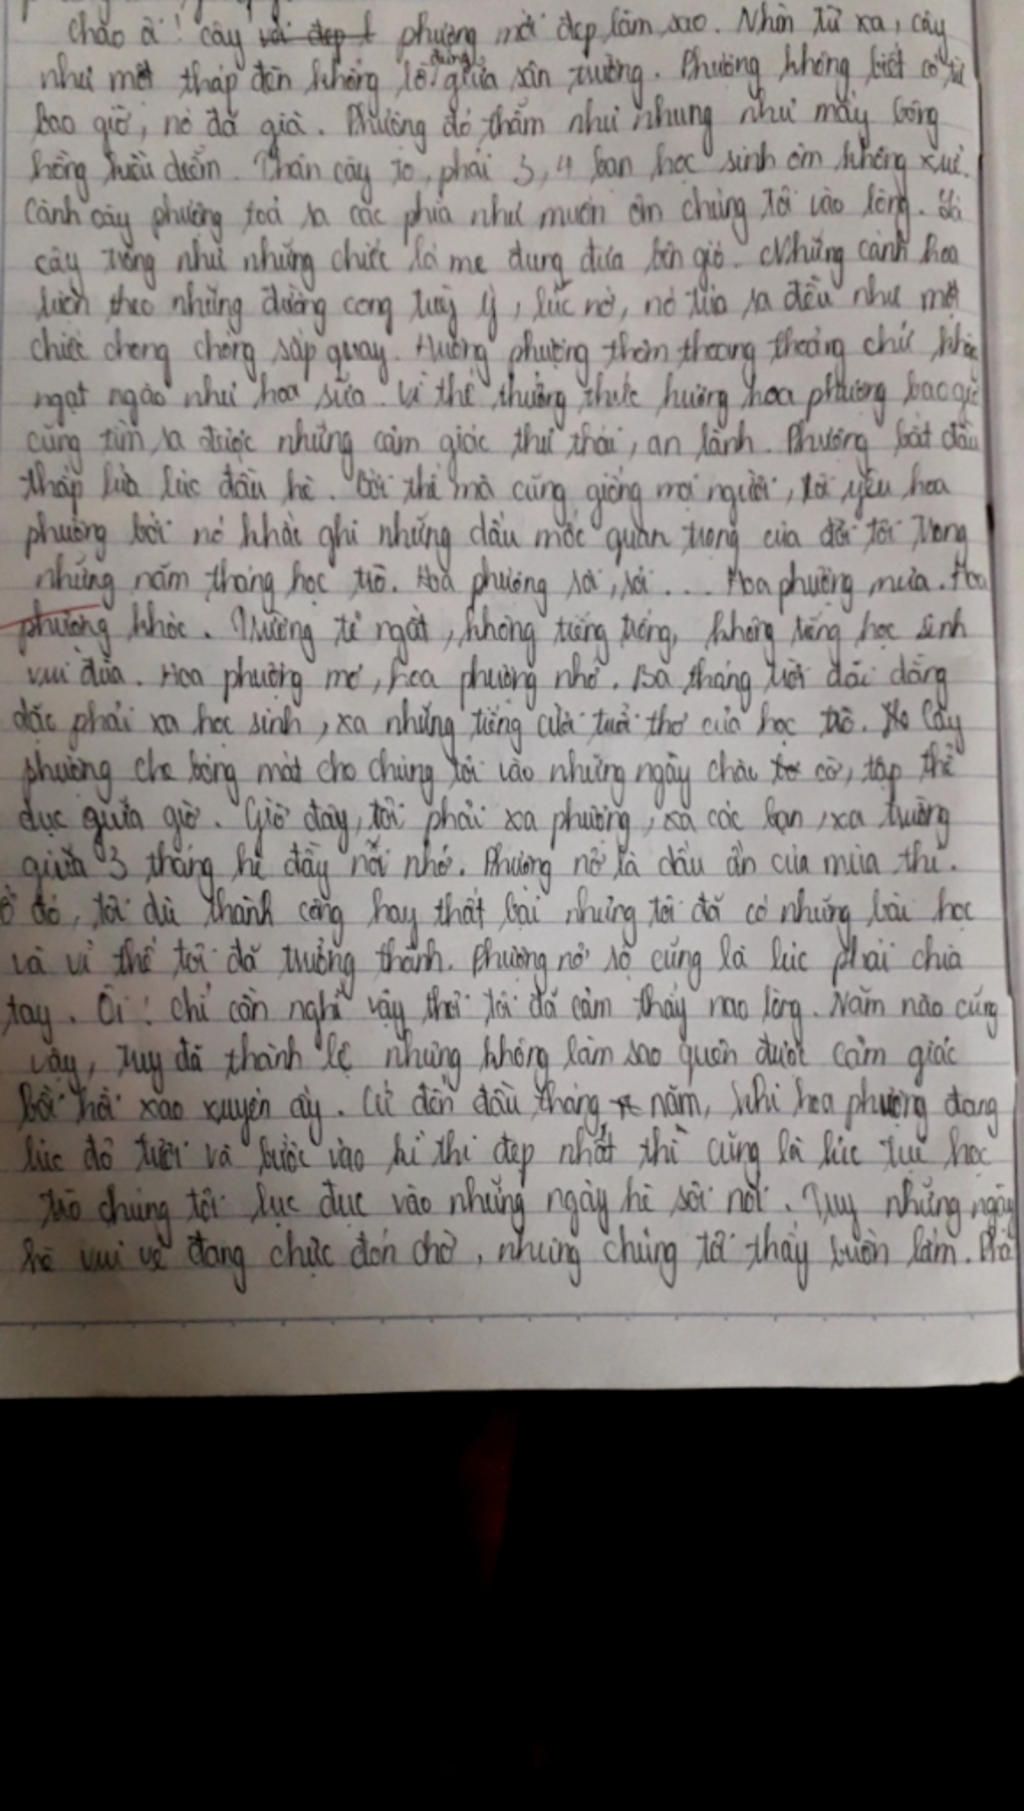 Chao ôi! cây phượng mới đẹp làm sao. Nhìn từ xa, cây
như một tháp đèn khổng lồ đứng giữa sân trường. Phượng không biết có từ
bao giờ, nó đã già. Phượng đỏ thắm như nhung như mấy bông
hồng kiều diễm. Thân cây to, phải 3, 4 bạn học sinh ôm không xuể.
Cành cây phượng toả ra các phía như muốn ôm chúng tôi vào lòng. Lá
cây trông như những chiếc lá me đung đưa bên gió. Những cành hoa
lượn theo những đường cong tuỳ ý, lúc nở, nó xòe ra đều như một
chiếc chong chóng sắp quay. Hương phượng thơm thoang thoảng chứ không
ngạt ngào như hoa sữa. Vì thế thưởng thức hương hoa phượng bao giờ
cũng tìm ra được những cảm giác thư thái, an lành. Phượng bắt đầu
thắp lửa lúc đầu hè. Bởi thế mà cũng giống mọi người, tôi yêu hoa
phượng bởi nó khắc ghi những dấu mốc quan trọng của đời tôi trong
những năm tháng học trò. Hoa phượng rơi, rơi.... Hoa phượng mưa. Hoa
phượng khóc. Trường tẻ ngắt, không tiếng trống, không tiếng học sinh
vui đùa. Hoa phượng mơ, hoa phượng nhớ. Ba tháng trời dài dằng
dặc phải xa học sinh, xa những tiếng cười tuổi thơ của học trò. Cây
phượng che bóng mát cho chúng tôi vào những ngày chào cờ, tập thể
dục giữa giờ. Giờ đây, tôi phải xa phượng, xa các bạn, xa trường
giữa 3 tháng hè đầy nỗi nhớ. Phượng nở là dấu ấn của mùa thi.
Ở đó, tôi dù thành công hay thất bại nhưng tôi đã có những bài học
và vì thế tôi đã trưởng thành. Phượng nở rộ cũng là lúc phải chia
tay. Ôi! chỉ cần nghĩ vậy thôi tôi đã cảm thấy nao lòng. Năm nào cũng
vậy, tuy đã thành lệ nhưng không làm sao quên được cảm giác
bồi hồi xao xuyến ấy. Cứ đến đầu tháng năm, khi hoa phượng đang
lúc đỏ tươi và bước vào kì thi đẹp nhất thì cũng là lúc tụi học
trò chúng tôi lục đục vào những ngày hè sôi nổi. Tuy những ngày
hè vui vẻ đang chực đón chờ, nhưng chúng tôi thấy buồn lắm.